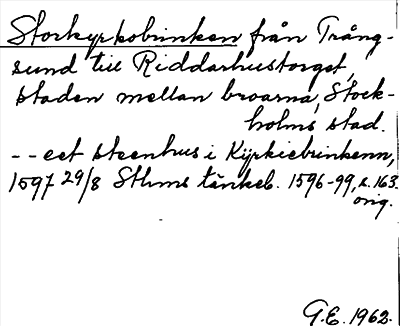 Storkyrkobrinken från Trång-
sund till Riddarhustorget,
staden mellan broarna, Stock-
holms stad.
-- eet steenhus i Kyrkiebrinkenn,
1597 29/8 Sthms tänkeb. 1596-99, s. 163.
orig.
G.E. 1962.